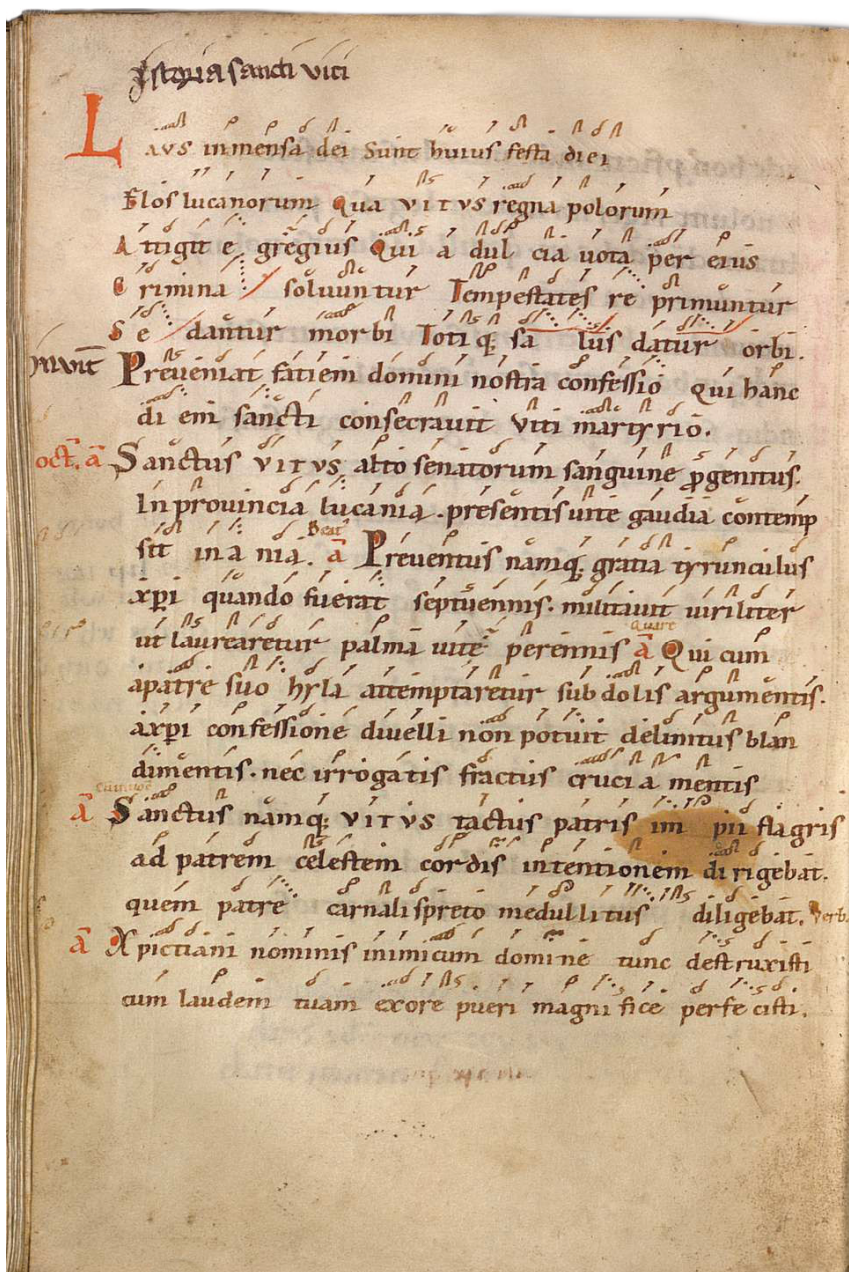 Istoria sancti viti
Laus inmensa dei Sunt huius festa diei
Flos lucanorum Qua VITVS regna polorum
Attigit e gregius Qui a dul cia uota per eius
Crimina soluuntur Tempestates re primuntur
Se dantur morbi Totiq; sa lus datur orbi.
Invit Preueniat fatiem domini nostra confessio qui hanc
di em sancti consecrauit viti martyrio.
oct. a Sanctus VITVS alto senatorum sanguine pgenitus.
In prouincia lucania. presentis uite gaudia contemp
sit in a nia. Beat a Preuentus namq; gratia tyrunculus
xpi quando fuerat septuennis. militauit uiriliter
ut laurearetur palma uite perennis Quare a Qui cum
a patre suo hyla attemptaretur sub dolis argumentis.
a xpi confessione diuelli non potuit delinitus blan
dimentis. nec irrogatis fractus crucia mentis
a Sanctus namq; VITVS tactus patris im pii flagris
ad patrem celestem cordis intentionem di rigebat.
quem patre carnali spreto medullitus diligebat. Verb
a Xpictiani nominis inimicum domine tunc destruxisti
cum laudem tuam exore pueri magni fice perfe cisti.